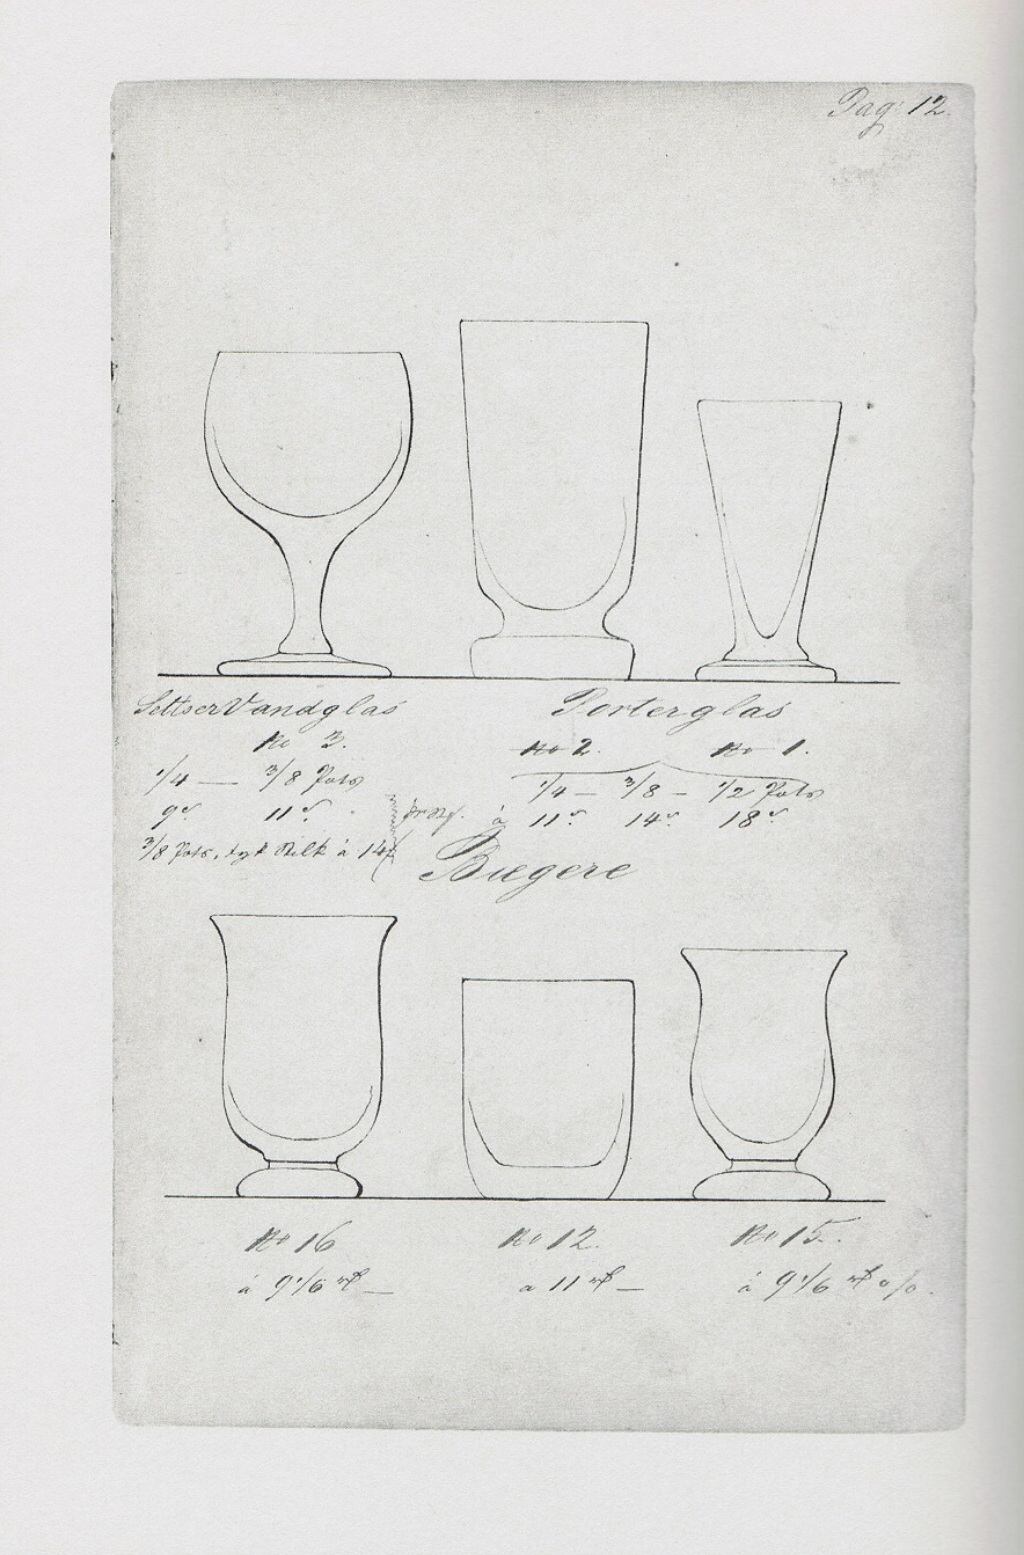 Pag: 12.
SeltserVandglas
No 3.
1/4 — 3/8 Pots
9 11
3/8 Pots, tyk Stilk à 14
Porterglas
No 2. No 1.
1/4 – 3/8 – 1/2 Pots
à 11 14 18
Bægere
No 16
à 9 1/6 —
No 12.
a 11 —
No 15.
à 9 1/6 o/o.